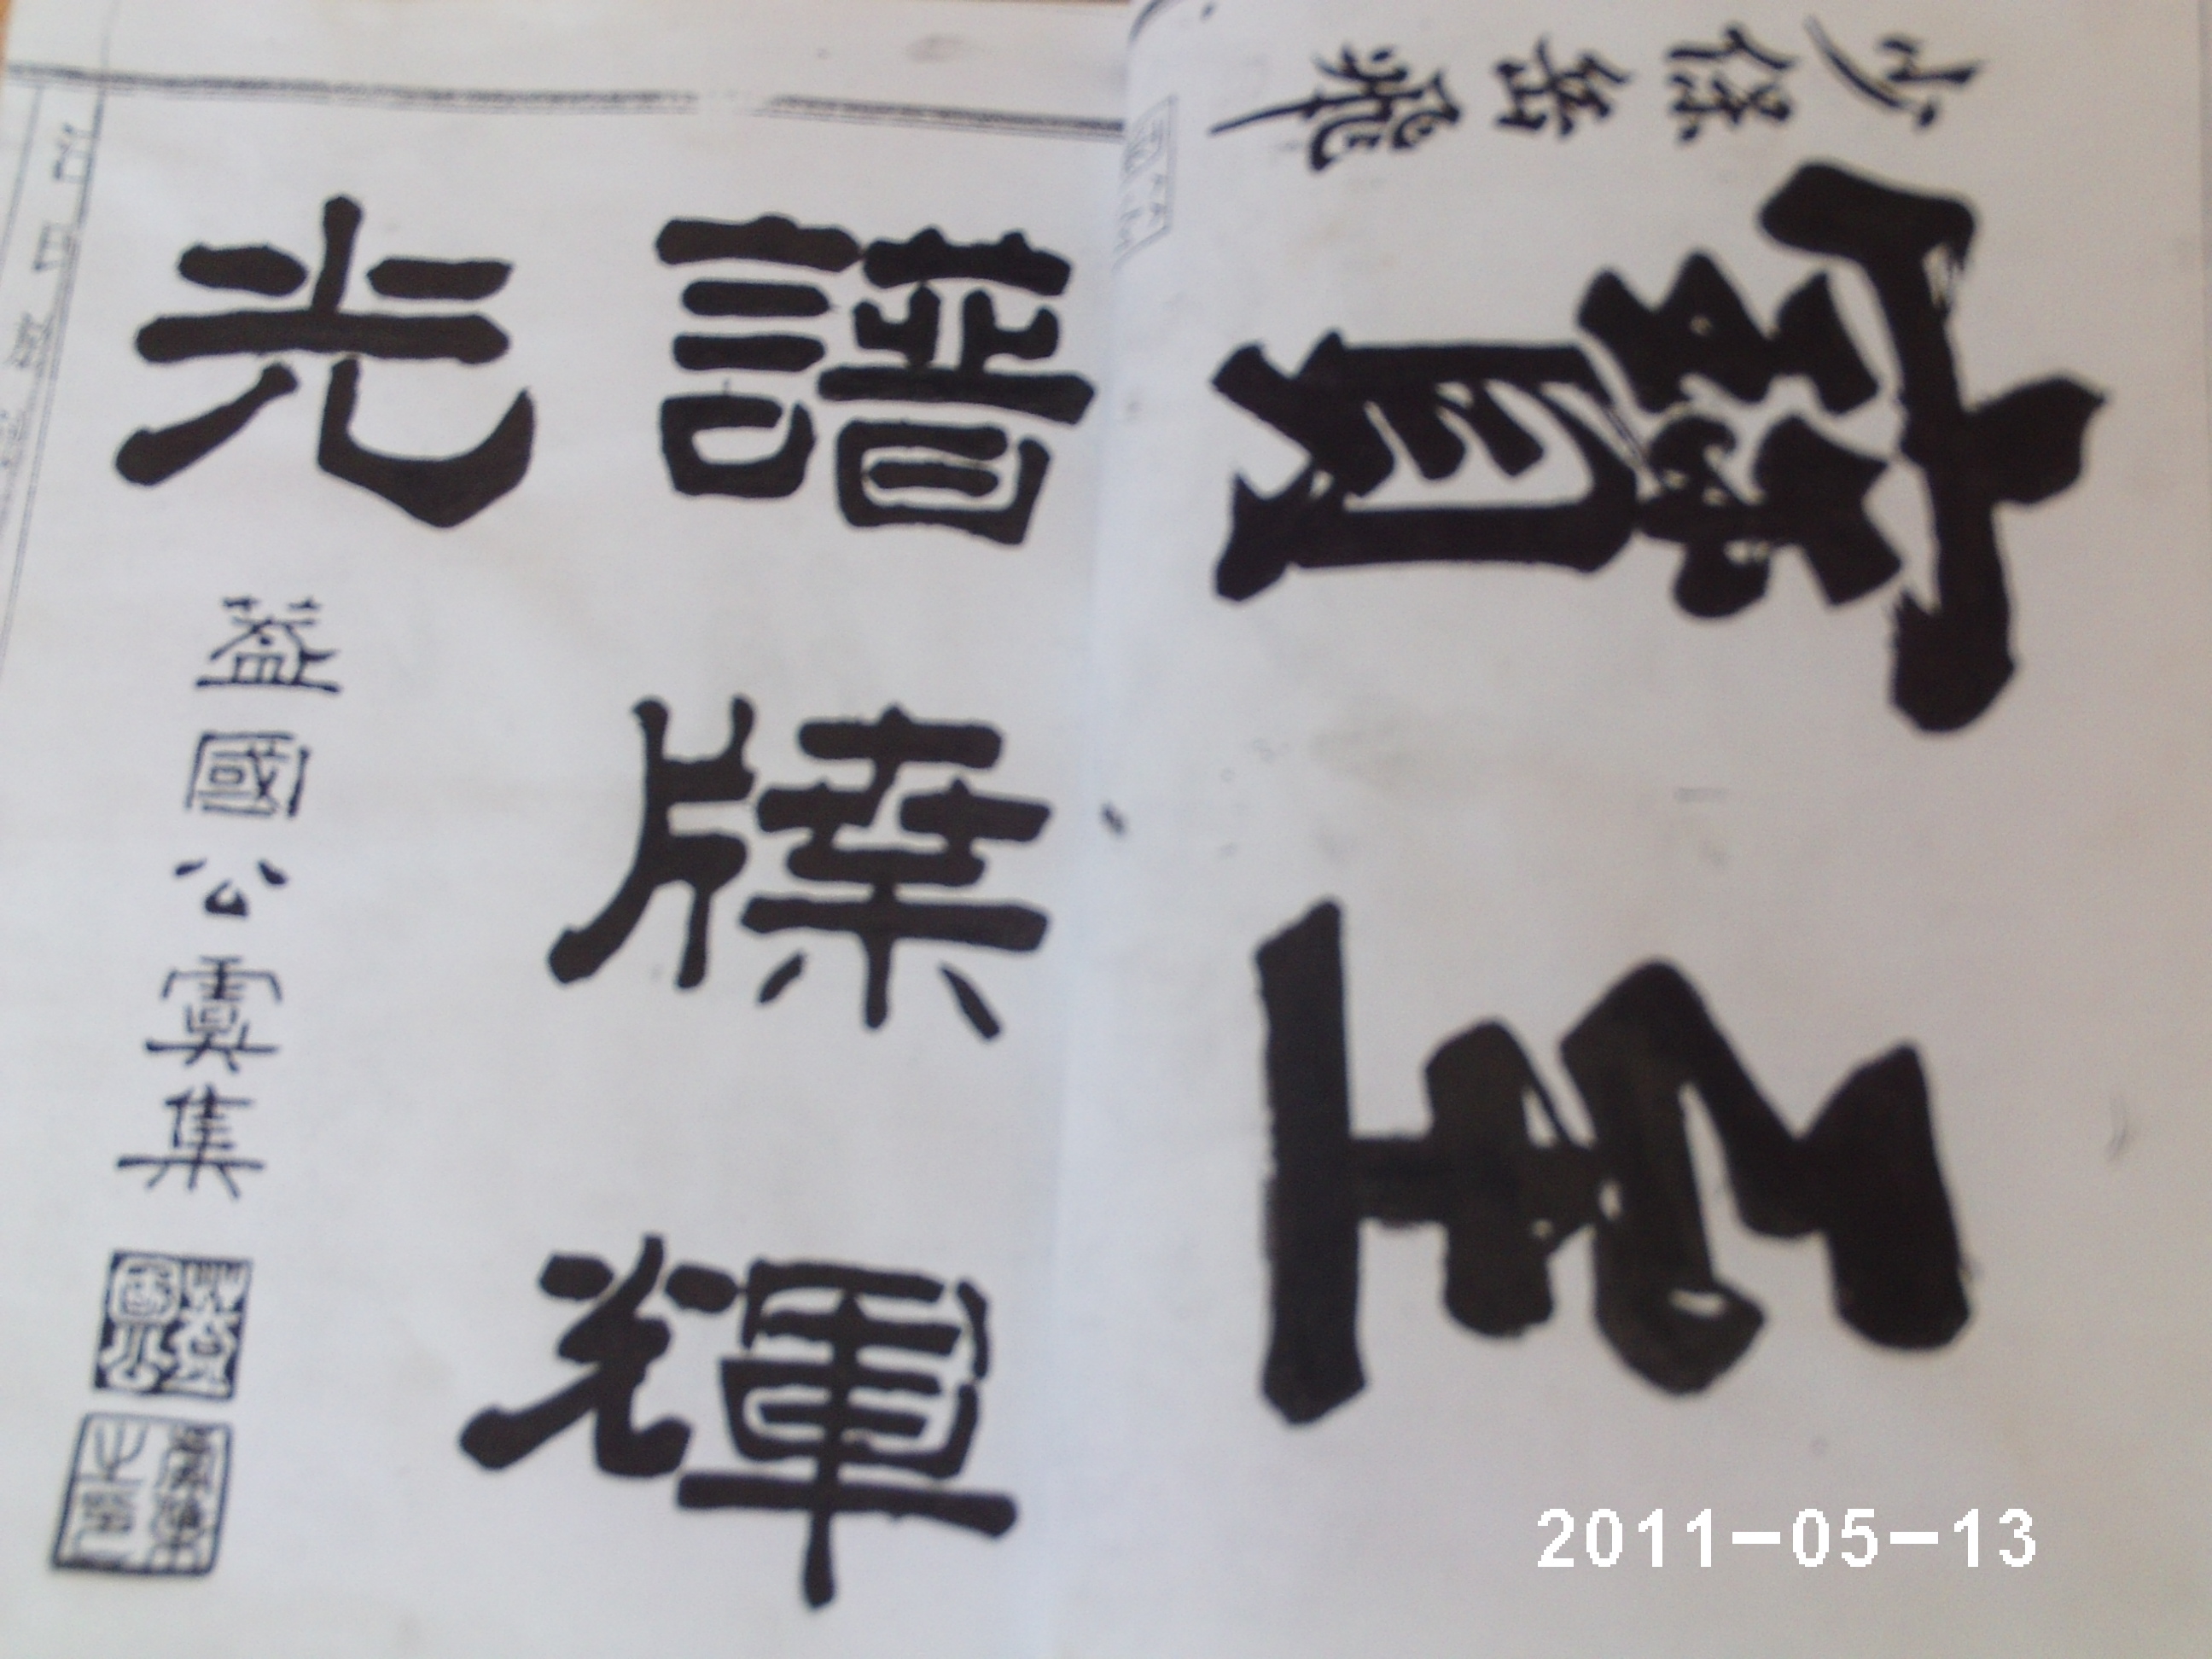 至寶
少保岳飛
譜牒輝
光
益國公虞集
2011-05-13